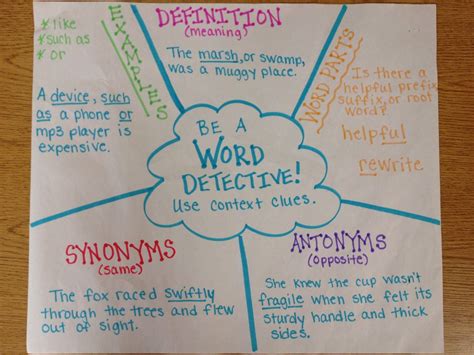 * like
* such as
* or
EXAMPLES
A device, such
as a phone or
mp3 player is
expensive.
DEFINITION
(meaning)
The marsh, or swamp,
was a muggy place.
WORD PARTS
Is there a
helpful prefix,
suffix, or root
word?
helpful
rewrite
BE A
WORD
DETECTIVE!
Use context clues.
SYNONYMS
(same)
The fox raced swiftly
through the trees and flew
out of sight.
ANTONYMS
(opposite)
She knew the cup wasn't
fragile when she felt its
sturdy handle and thick
sides.